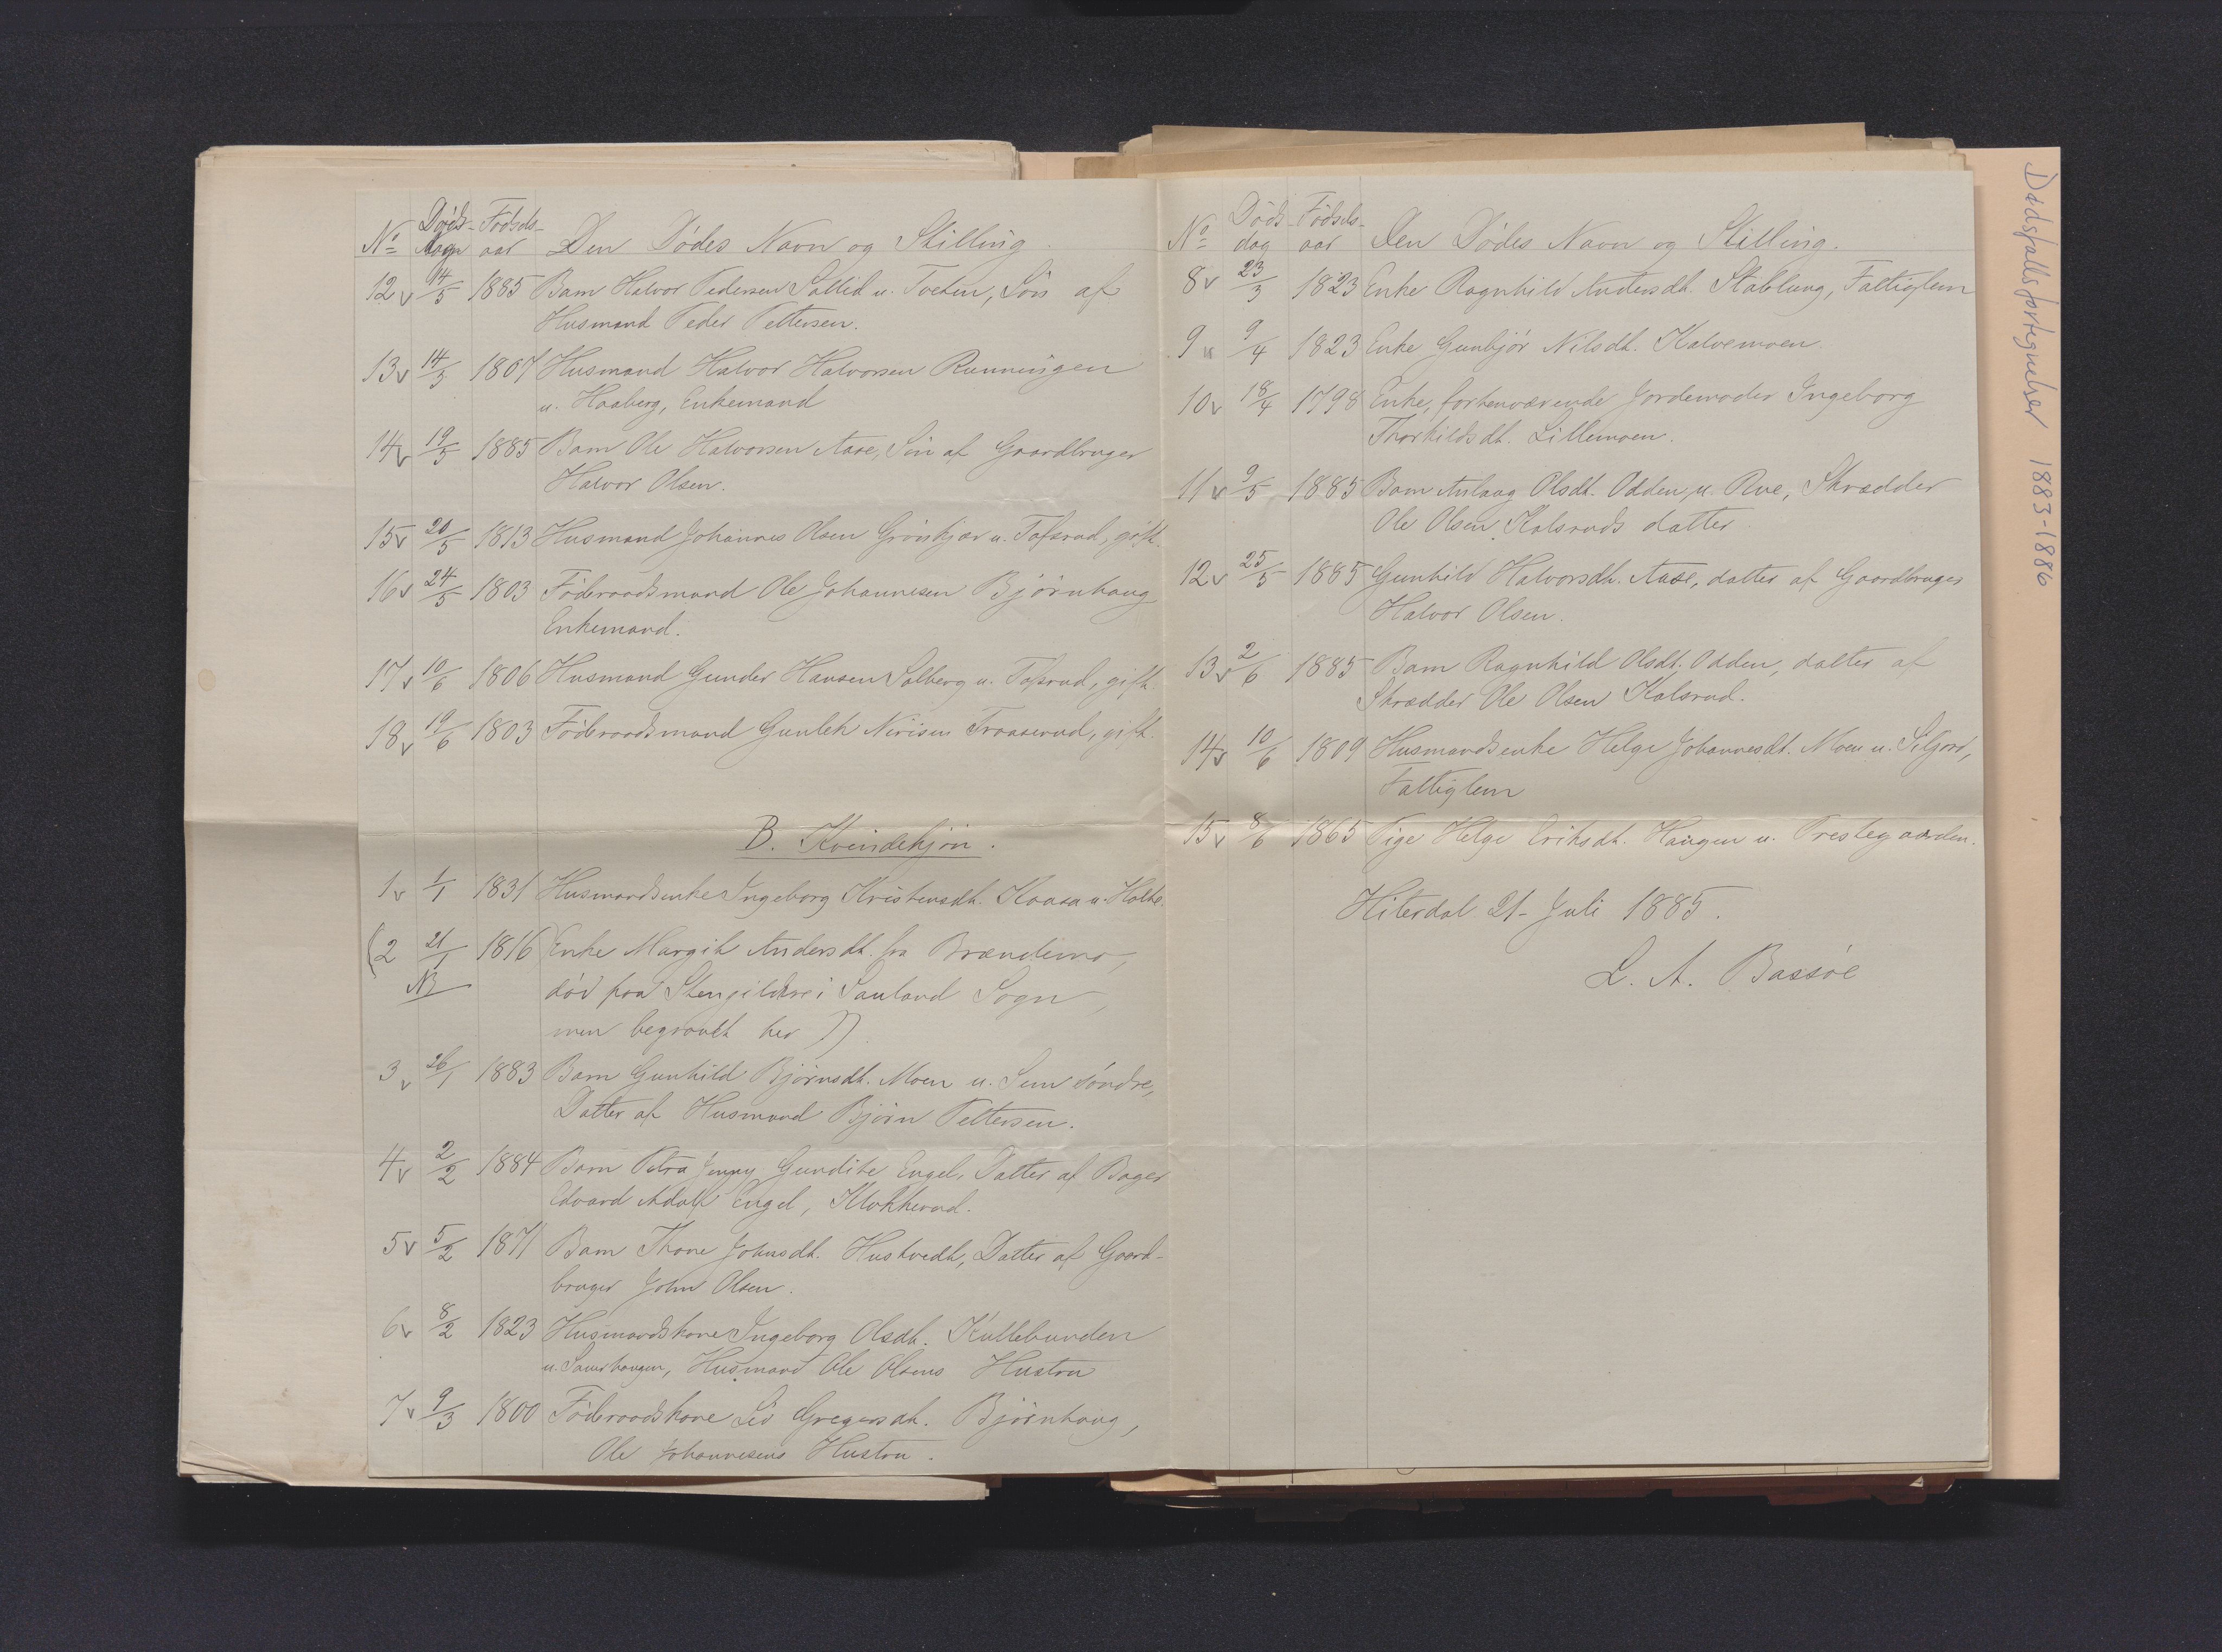 No Døds- dagn Fødsels- aar Den Dødes Navn og Stilling.
12 v 14/5 1885 Barn Halvor Pedersen u. Tveten, Søn af
Husmand Peder Pettersen.
13 v 14/5 1807 Husmand Halvor Halvorsen Runningen
u. Haaberg, Enkemand
14 v 19/5 1885 Barn Ole Halvorsen Aase, Søn af Gaardbruger
Halvor Olsen.
15 v 20/5 1813 Husmand Johannes Olsen Grønkjær u. Tofsrud, gift.
16 v 24/5 1803 Føderaadsmand Ole Johannesen Bjørnhaug
Enkemand.
17 v 10/6 1806 Husmand Gunder Hansen Solberg u. Tofsrud, gift.
18 v 19/6 1803 Føderaadsmand Gunlek Nirisen Traaserud, gift.
B. Kvindekjøn.
1 v 1/1 1831 Husmandsenke Ingeborg Kristensdt. Kaasa u. Holte.
(2 21/1 1816 Enke Margit Andersdt. fra Brændimo,
NB død paa i Sauland Sogn,
men begravet her))
3 v 26/1 1883 Barn Gunhild Bjørnsdt. Moen u. Sem søndre,
Datter af Husmand Bjørn Pettersen.
4 v 2/2 1884 Barn Petra Jenny Gundite Engel, Datter af Bager
Edvard Adolf Engel, Klokkerud.
5 v 5/2 1871 Barn Thone Johnsdt. Hustvedt, Datter af Gaard-
bruger John Olsen.
6 v 8/2 1823 Husmandskone Ingeborg Olsdt. Kullebunden
u. Husmand Ole Olsens Hustru
7 v 9/3 1800 Føderaadskone Liv Gregersdt. Bjørnhaug,
Ole Johannesens Hustru.
No Døds- dag Fødsels- aar Den Dødes Navn og Stilling.
8 v 23/3 1823 Enke Ragnhild Andersdt. Støblung, Fattiglem
9 v 9/4 1823 Enke Gunbjør Nilsdt. Kalvemoen
10 v 18/4 1798 Enke, forhenværende Jordemoder Ingeborg
Thorkildsdt. Lillemoen.
11 v 9/5 1885 Barn Aslaug Olsdt. Odden, u. Rue, Skrædder
Ole Olsen Kolsruds datter
12 v 25/5 1885 Gunhild Halvorsdt. Aase, datter af Gaardbruger
Halvor Olsen.
13 v 2/6 1885 Barn Ragnhild Olsdt. Odden, datter af
Skrædder Ole Olsen Kolsrud.
14 v 10/6 1809 Husmandsenke Helge Johannesdt. Moen u. Siljord,
Fattiglem
15 v 8/6 1865 Pige Helge Eriksdt. Haugen u. Prestegaarden.
Hiterdal 21- Juli 1885.
L. A. Bassøe
Dødsfallsfortegnelser 1883-1886